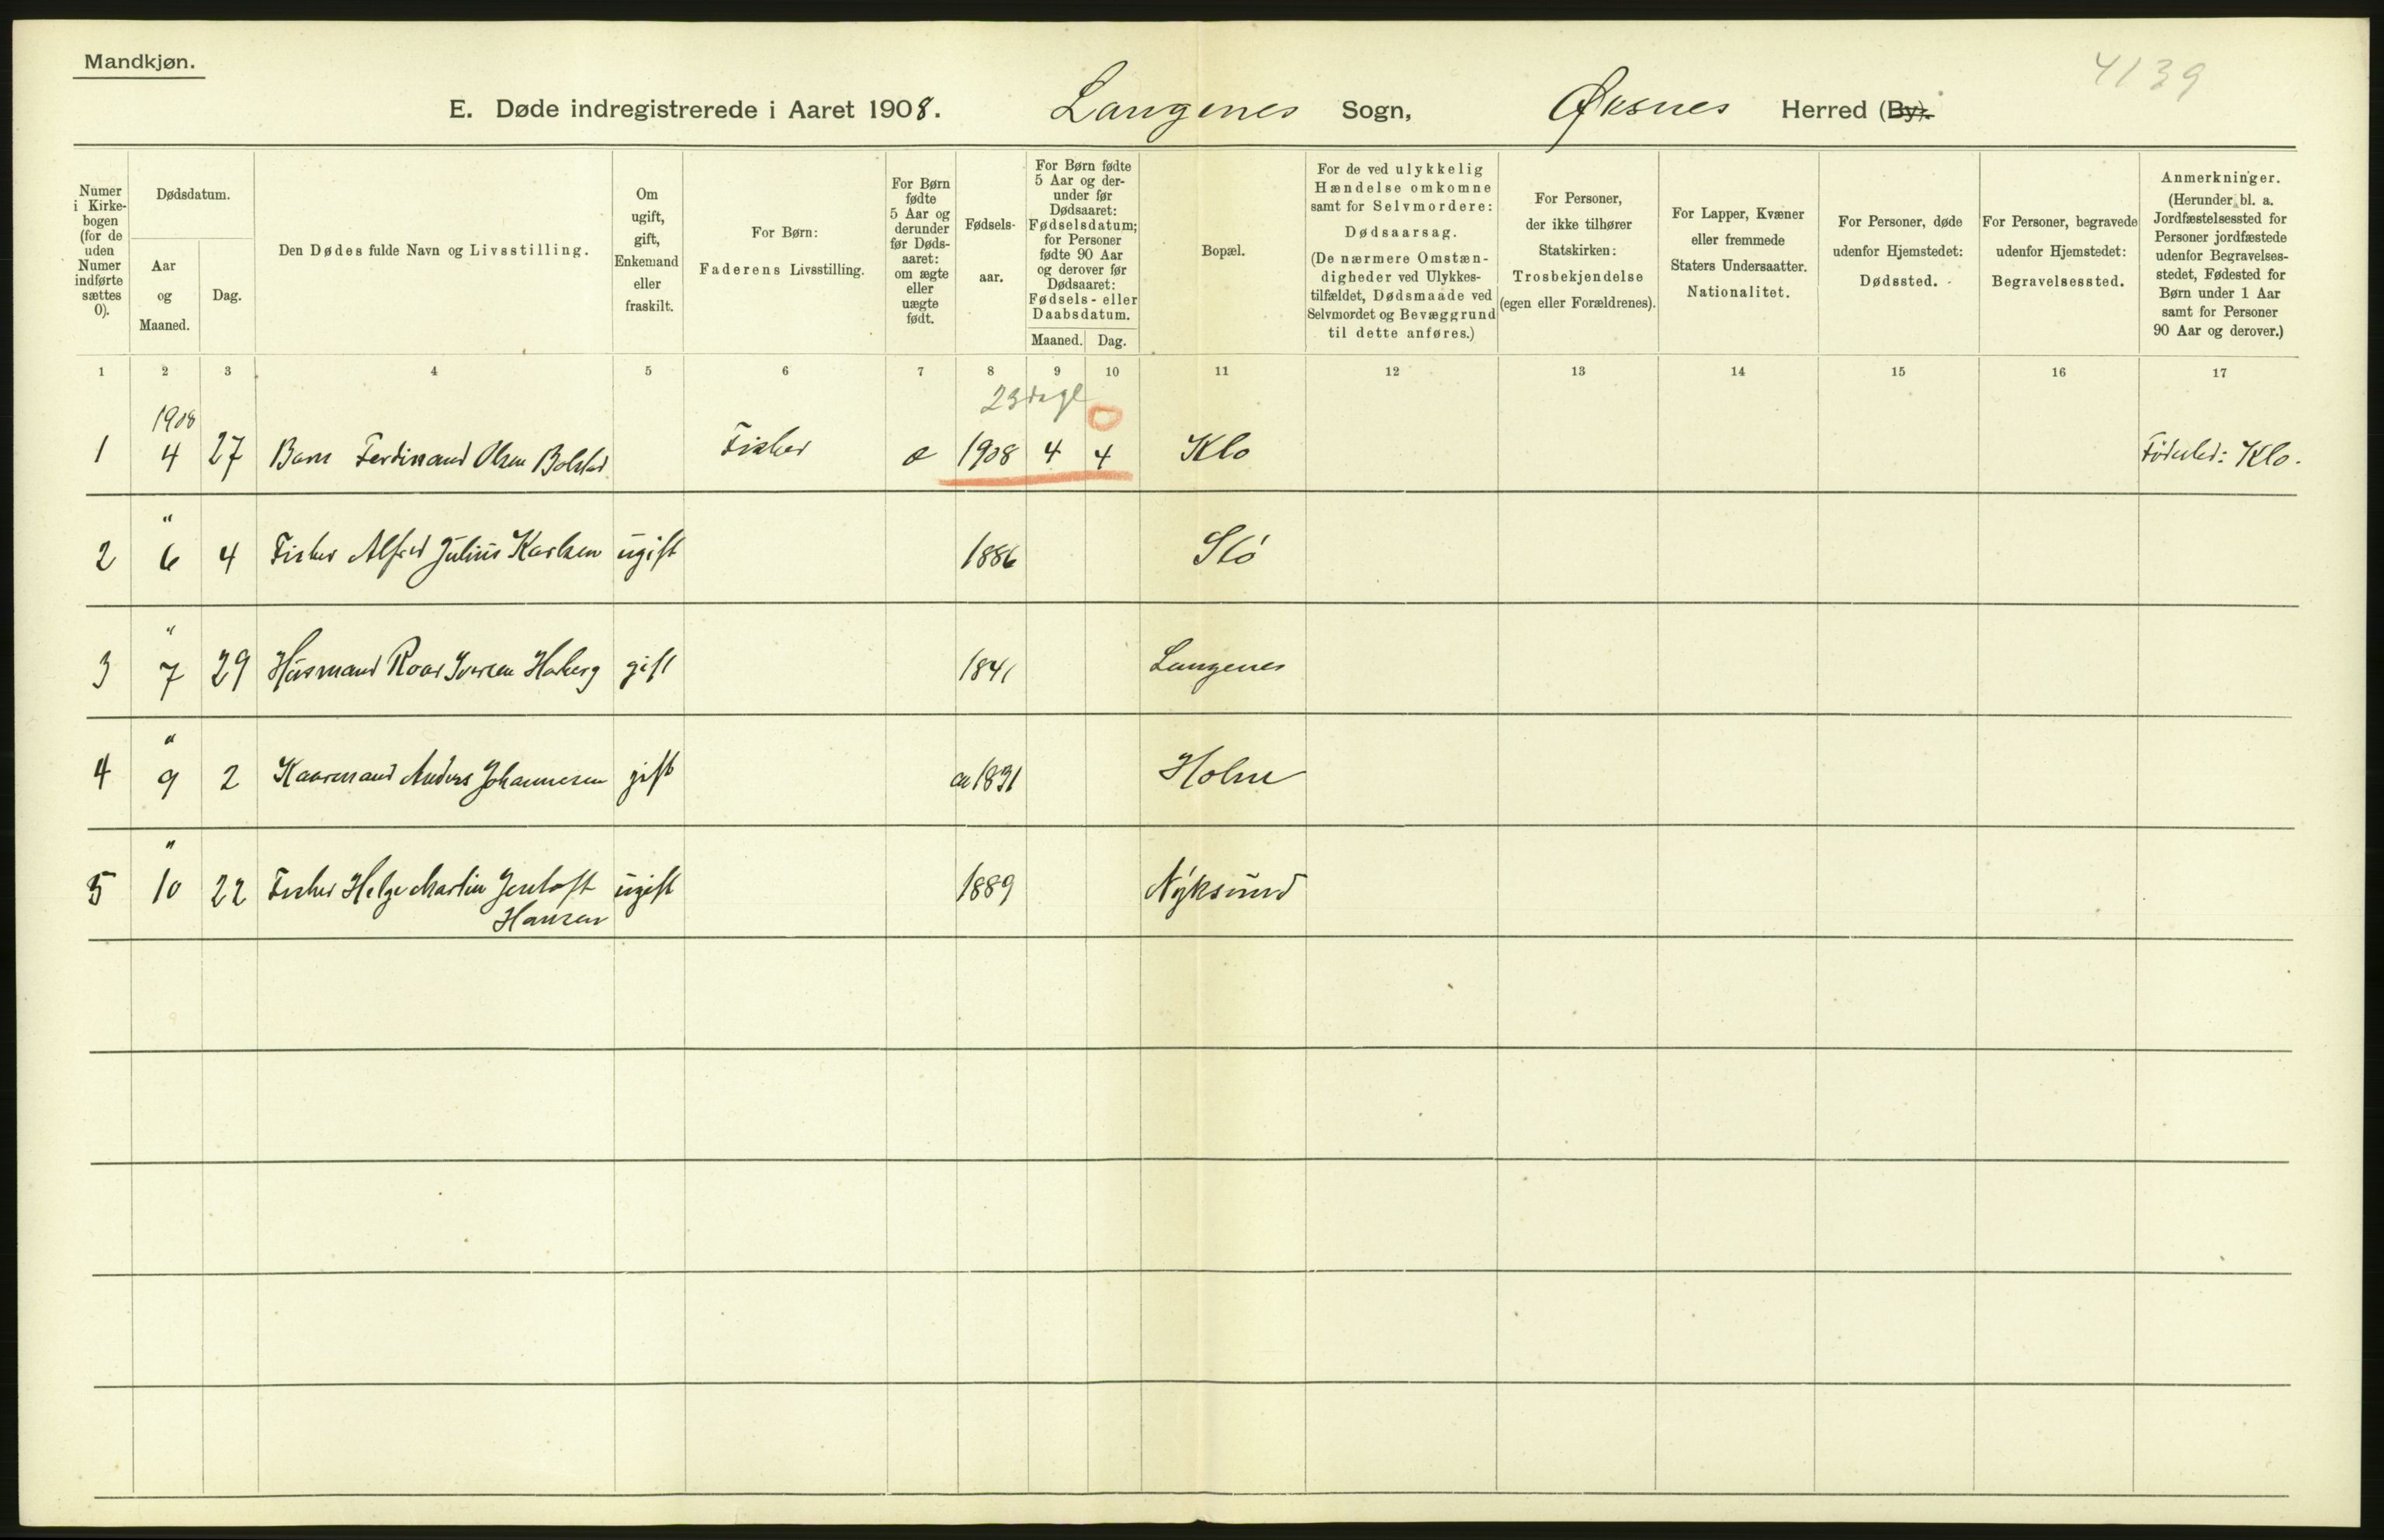 Mandkjøn.
4139
E. Døde indregistrerede i Aaret 1908. Langenes Sogn, Øksnes Herred (By).
Numer i Kirke-bogen (for de uden Numer indførte sættes 0).
Dødsdatum.
Aar og Maaned.
Dag.
Den Dødes fulde Navn og Livsstilling.
Om ugift, gift, Enkemand eller fraskilt.
For Børn: Faderens Livsstilling.
For Børn fødte 5 Aar og derunder før Døds-aaret: om ægte eller uægte født.
Fødsels-aar.
For Børn fødte 5 Aar og der-under før Dødsaaret: Fødselsdatum; for Personer fødte 90 Aar og derover før Dødsaaret: Fødsels- eller Daabsdatum.
Maaned. Dag.
Bopæl.
For de ved ulykkelig Hændelse omkomne samt for Selvmordere: Dødsaarsag. (De nærmere Omstæn-digheder ved Ulykkes-tilfældet, Dødsmaade ved Selvmordet og Bevæggrund til dette anføres.)
For Personer, der ikke tilhører Statskirken: Trosbekjendelse (egen eller Forældrenes).
For Lapper, Kvæner eller fremmede Staters Undersaatter. Nationalitet.
For Personer, døde udenfor Hjemstedet: Dødssted.
For Personer, begravede udenfor Hjemstedet: Begravelsessted.
Anmerkninger. (Herunder bl. a. Jordfæstelsessted for Personer jordfæstede udenfor Begravelses-stedet, Fødested for Børn under 1 Aar samt for Personer 90 Aar og derover.)
1 2 3 4 5 6 7 8 9 10 11 12 13 14 15 16 17
23 dage
0
1908
1 4 27 Barn Ferdinand Olsen Bolstad Fisker æ 1908 4 4 Klo Fødested: Klo.
"
2 6 4 Fisker Alfred Julius Karlsen ugift 1886 Stø
"
3 7 29 Husmand Roar Iversen Haberg gift 1841 Langenes
"
4 9 2 Kaarmand Anders Johannesen gift ca 1831 Holm
"
5 10 22 Fisker Helge Martin Jentoft ugift 1889 Nyksund
Hansen